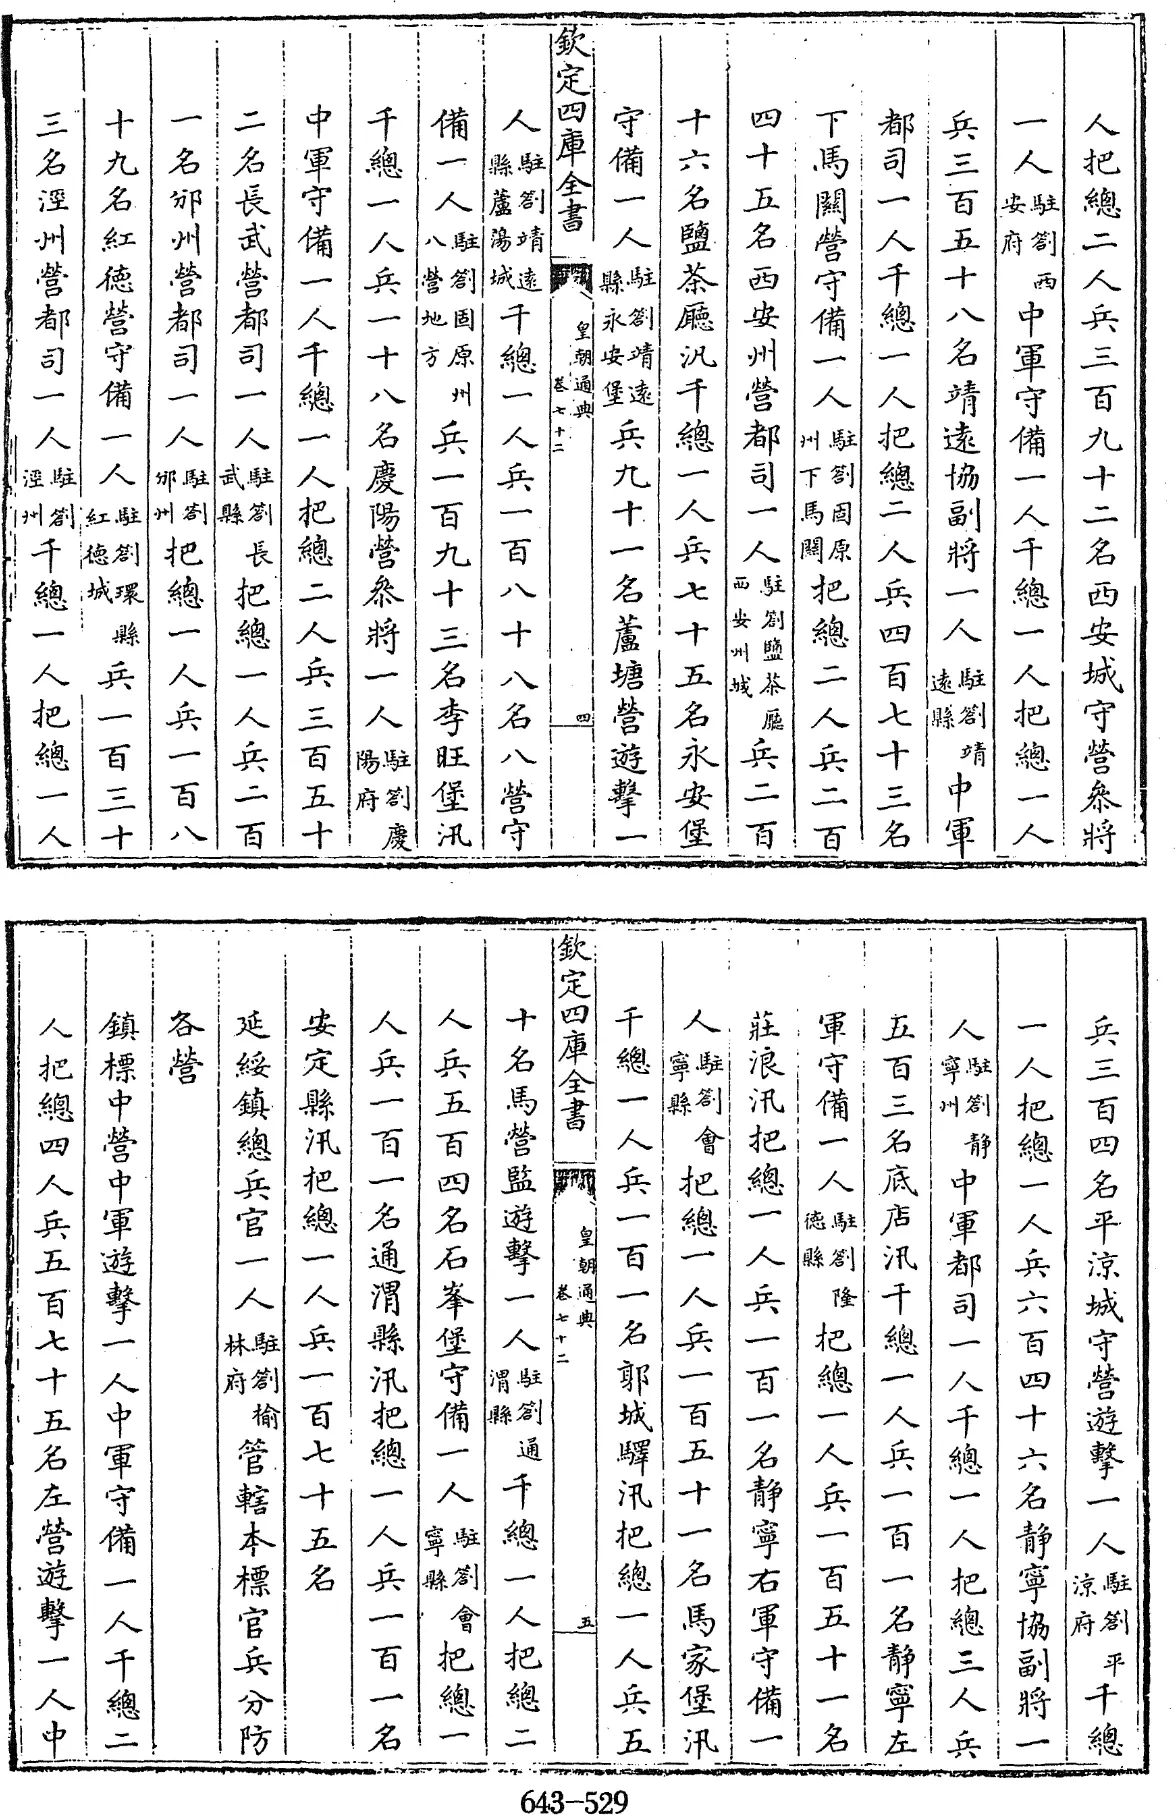 人把總二人兵三百九十二名西安城守營叅將
一人駐劄西安府中軍守備一人千總一人把總一人
兵三百五十八名靖遠協副將一人駐劄靖遠縣中軍
都司一人千總一人把總二人兵四百七十三名
下馬關營守備一人駐劄固原州下馬關把總二人兵二百
四十五名西安州營都司一人駐劄鹽茶廳西安州城兵二百
十六名鹽茶廳汛千總一人兵七十五名永安堡
守備一人駐劄靖遠縣永安堡兵九十一名蘆塘營遊擊一
欽定四庫全書
皇朝通典
卷七十二
四
人駐劄靖遠縣蘆蕩城千總一人兵一百八十八名八營守
備一人駐劄固原州八營地方兵一百九十三名李旺堡汛
千總一人兵一十八名慶陽營叅將一人駐劄慶陽府
中軍守備一人千總一人把總二人兵三百五十
二名長武營都司一人駐劄長武縣把總一人兵二百
一名邠州營都司一人駐劄邠州把總一人兵一百八
十九名紅德營守備一人駐劄環縣紅德城兵一百三十
三名涇州營都司一人駐劄涇州千總一人把總一人
兵三百四名平涼城守營遊擊一人駐劄平涼府千總
一人把總一人兵六百四十六名靜寧協副將一
人駐劄靜寧州中軍都司一人千總一人把總三人兵
五百三名底店汛千總一人兵一百一名靜寧左
軍守備一人駐劄隆德縣把總一人兵一百五十一名
莊浪汛把總一人兵一百一名靜寧右軍守備一
人駐劄會寧縣把總一人兵一百五十一名馬家堡汛
千總一人兵一百一名郭城驛汛把總一人兵五
欽定四庫全書
皇朝通典
卷七十二
五
十名馬營監遊擊一人駐劄通渭縣千總一人把總二
人兵五百四名石峯堡守備一人駐劄會寧縣把總一
人兵一百一名通渭縣汛把總一人兵一百一名
安定縣汛把總一人兵一百七十五名
延綏鎮總兵官一人駐劄榆林府管轄本標官兵分防
各營
鎮標中營中軍遊擊一人中軍守備一人千總二
人把總四人兵五百七十五名左營遊擊一人中
643-529